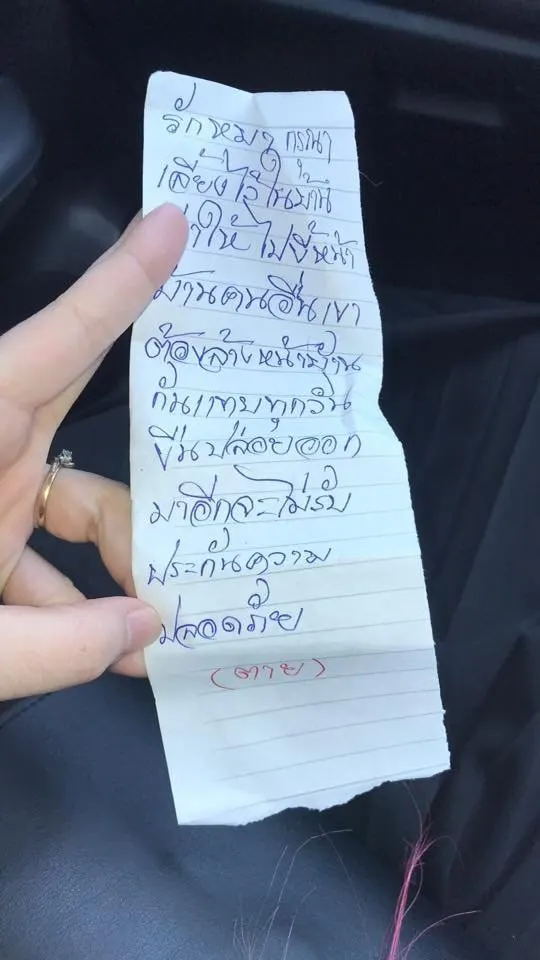 รักหมา กรุณา
เลี้ยงไว้ในบ้าน
ให้ไปขี้หน้า
บ้านคนอื่นเขา
ต้องล้างหน้าบ้าน
กันแทบทุกวัน
ขืนปล่อยออก
มาอีกจะไม่รับ
ประกันความ
ปลอดภัย
(ตาย)